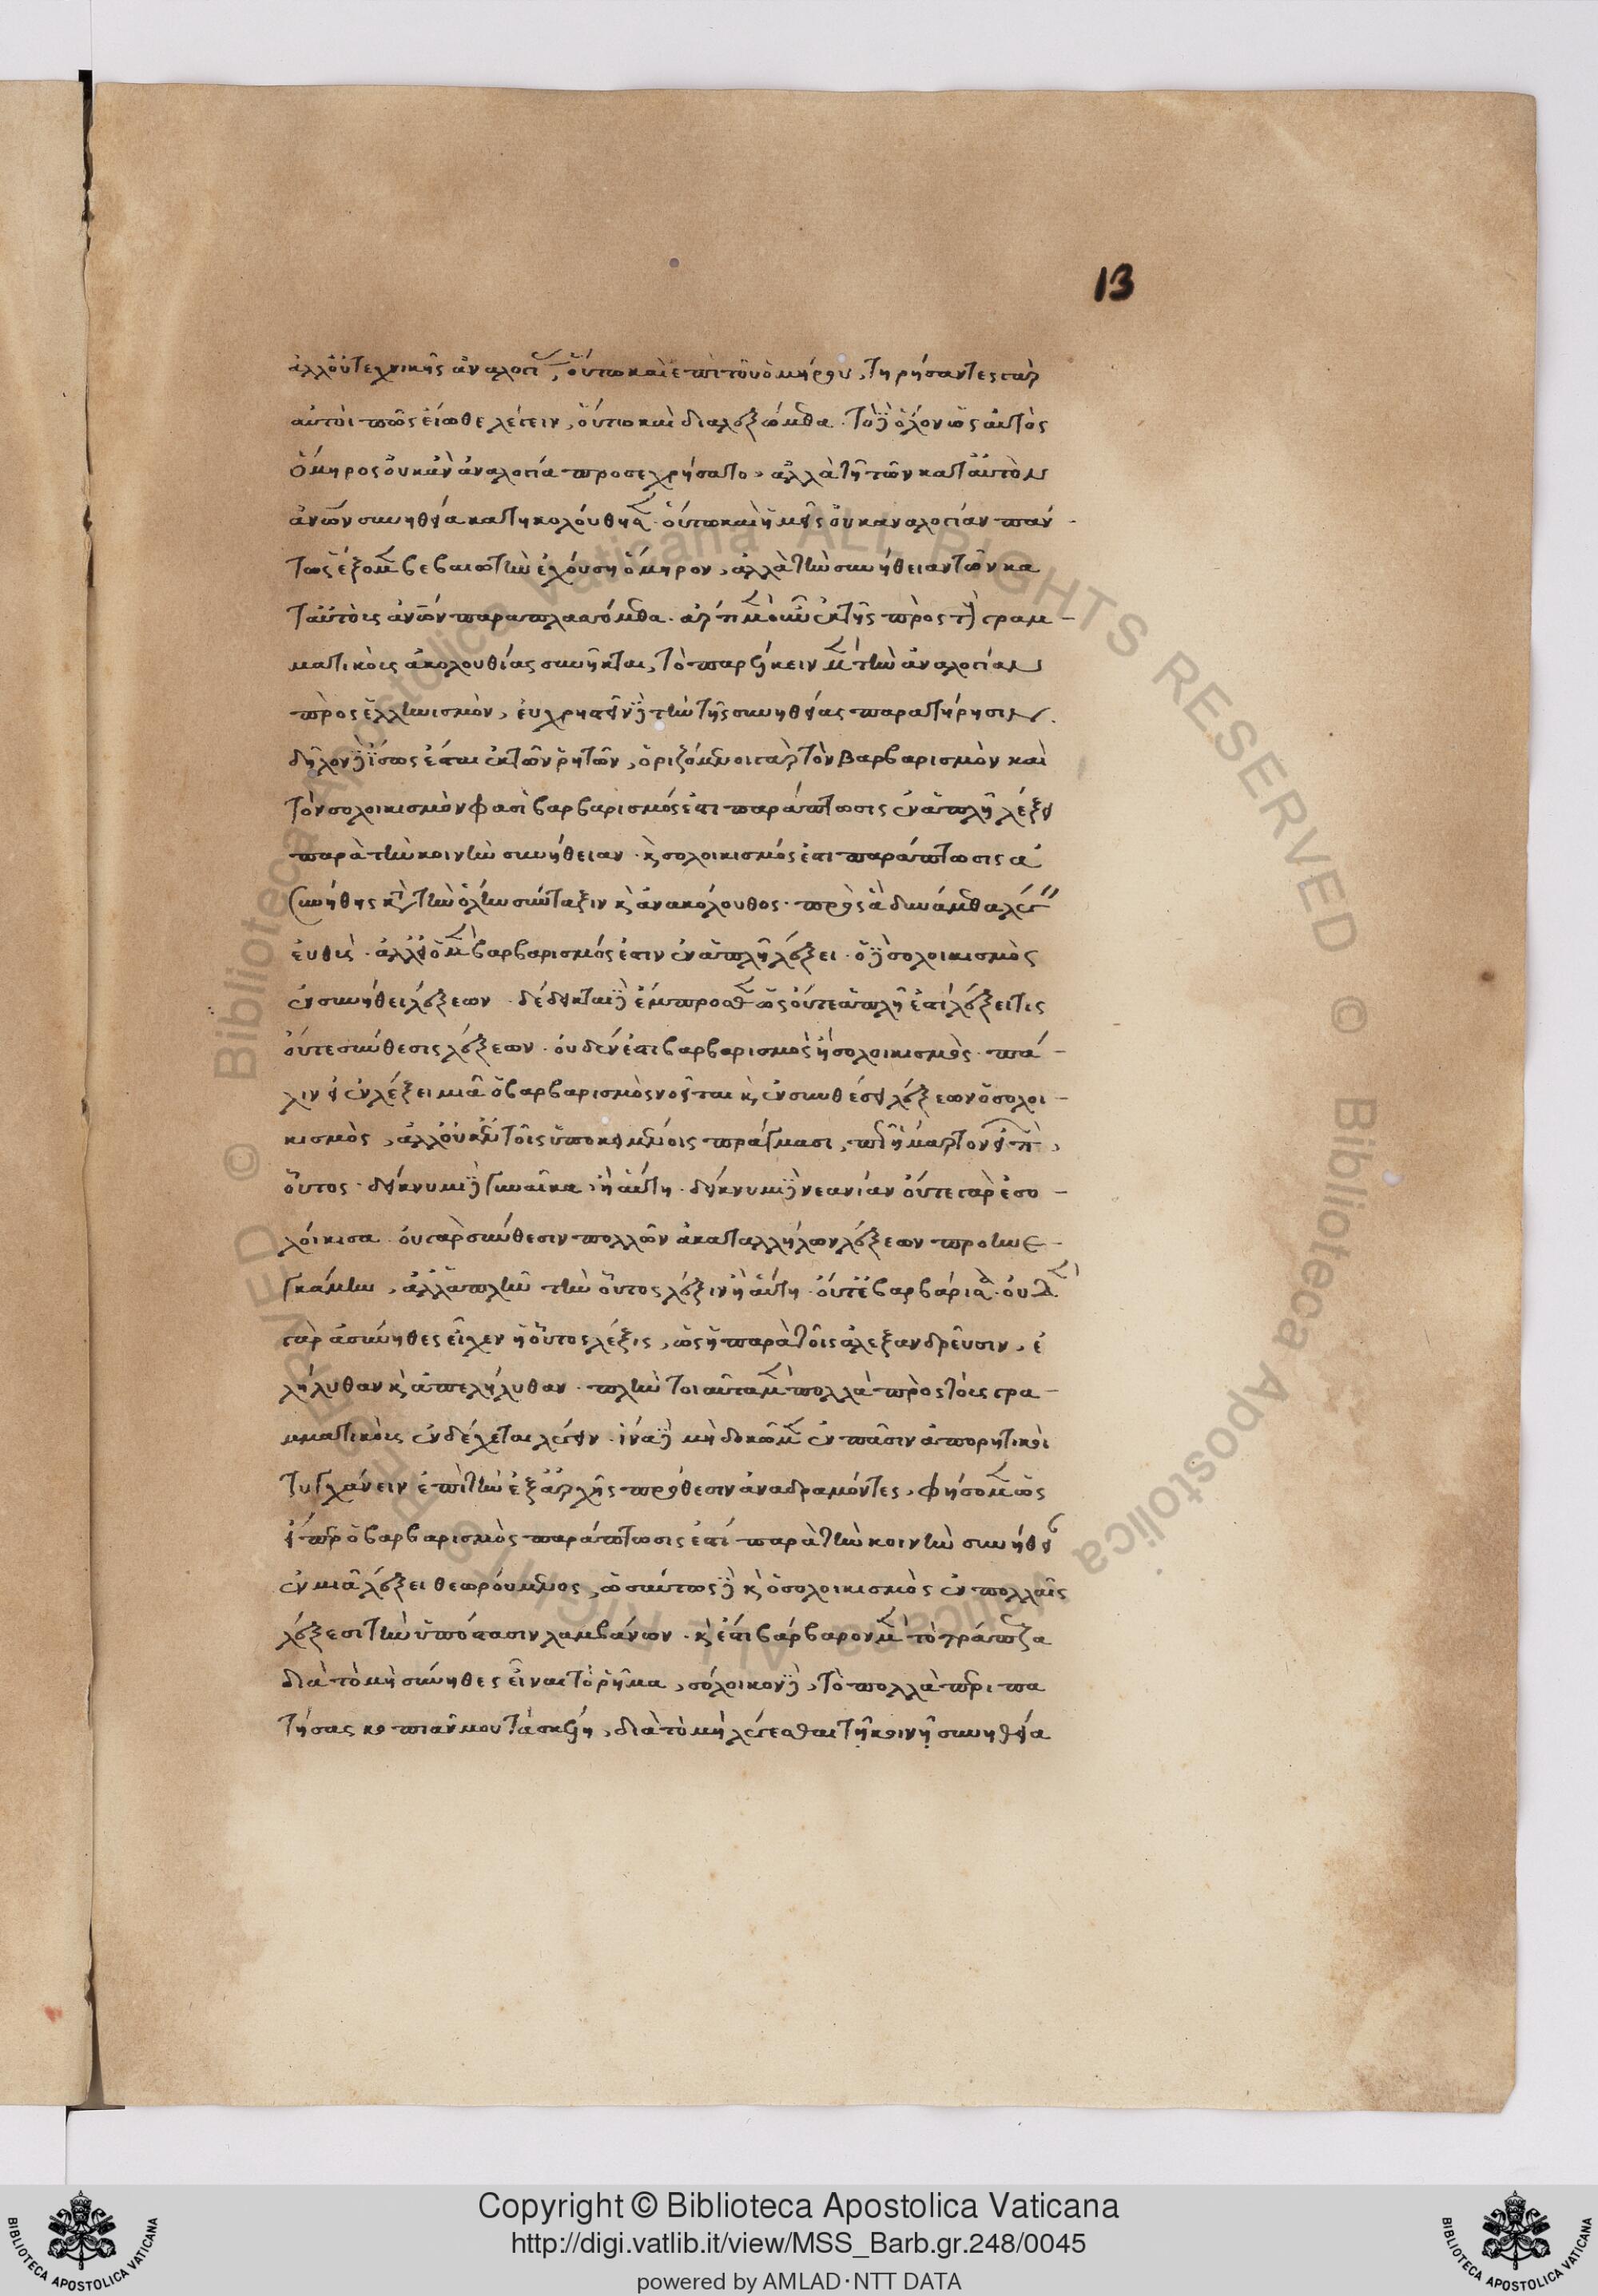 13
ἀλλ' οὐ τεχνικῆς ἀναλογίας, οὕτω καὶ ἐπὶ τοῦ ὁμήρου, τηρήσαντες γὰρ
αὐτοὶ πῶς εἴωθε λέγειν, οὕτω καὶ διαλεξώμεθα. τὸ δὲ ὅλον ὡς αὐτὸς
ὅμηρος οὐκ ἂν ἀναλογία προσεχρήσατο, ἀλλὰ τῆ τῶν κατ' αὐτὸν
ἀνων συνηθεία κατηκολούθησεν. οὕτω καὶ ἡμεῖς οὐκ αναλογίαν παν
τως ἕξομεν βεβαιωτὴν ἐχούση ὅμηρον, ἀλλὰ τὴν συνήθειαν τῶν κα
τ' αὐτοὺς ἀνων παραπλασόμεθα. ἄρτι μὲν οὖν ἐκ τῆς πρὸς τοὺς γραμ
ματικοὺς ἀκολουθίας συνῆκται, τὸ παρέλκειν μὲν τὴν ἀναλογίαν
πρὸς ἑλληνισμὸν, εὐχρηστεῖν δὲ τὴν τῆς συνηθείας παρατήρησιν.
δῆλον δὲ ἴσως ἐστι ἐκ τῶν ῥητῶν, ὁριζόμενοι γὰρ τὸν βαρβαρισμὸν καὶ
τὸν σολοικισμὸν φασὶ βαρβαρισμός ἐστι παράπτωσις ἐν ἁπλῆ λέξει
παρὰ τὴν κοινὴν συνήθειαν. κ σολοικισμός ἐστι παράπτωσις ἀ
συνήθης κατὰ τὴν ὅλην σύνταξιν κ ἀνακόλουθος. πρὸς ἃ δυνάμεθα λέγειν
εὐθὺς. ἀλλ' εἰ ὁ μὲν βαρβαρισμός ἐστιν ἐν ἁπλῆ λέξει. ὁ δὲ σολοικισμὸς
ἐν συνήθει λέξεων. δέδεικται δὲ ἔμπροσθεν ὡς οὔτε ἁπλῆ ἐστι λέξει τις
οὔτε σύνθεσις λέξεων. οὐδέν ἐστι βαρβαρισμὸς ἢ σολοικισμὸς. πά
λιν εἰ ἐν λέξει μιᾶ ὁ βαρβαρισμὸς νοεῖται κ, ἐν συνθέσει λέξεων ὁ σολοι
κισμὸς, ἀλλ' οὐκ ἐν τοῖς ὑποκειμένοις πράγμασι, τί ἥμαρτον εἰπὼν,
οὗτος. δείκνυμι δὲ γυναῖκα, ἢ αὕτη. δείκνυμι δὲ νεανίαν οὔτε γὰρ ἐσο
λοίκισα. οὐ γὰρ σύνθεσιν πολλῶν ἀκαταλλήλων λέξεων προην ε
γκάμην, ἀλλ' ἁπλῆν τὴν οὗτος λέξιν ἢ αὕτη. οὔτ' ἐβαρβάρισα. οὐδὲν
γὰρ ἀσύνηθες εἶχεν ἡ οὗτος λέξις, ὡς ἡ παρὰ τοῖς ἀλεξανδρεῦσιν, ἐ
λήλυθαν κ ἀπελήλυθαν. πλὴν τοιαῦτα μὲν πολλὰ πρὸς τοὺς γρα
μματικοὺς ἐνδέχεται λέγειν. ἵνα δὲ μὴ δοκῶμεν ἐν πᾶσιν ἀπορητικοὶ
τυγχάνειν ἐπὶ τὴν ἐξ ἀρχῆς πρόθεσιν ἀναδραμόντες, φήσομεν ὡς
εἴπερ ὁ βαρβαρισμὸς παράπτωσις ἐστί παρὰ τὴν κοινὴν συνήθειαν
ἐν μιᾶ λέξει θεωρούμενος, ὡσαύτως δὲ κ ὁ σολοικισμὸς ἐν πολλαῖς
λέξεσι τὴν ὑπόστασιν λαμβάνων. κ ἔστι βάρβαρον μὲν τὸ τράπεζα
διὰ τὸ μὴ σύνηθες εἶναι τὸ ῥῆμα, σόλοικον δὲ, τὸ πολλὰ περιπα
τήσας κοπιᾶν μου τὰ σκέλη, διὰ τὸ μὴ λέγεσθαι τῆ κοινῆ συνηθεία
Copyright © Biblioteca Apostolica Vaticana
http://digi.vatlib.it/view/MSS_Barb.gr.248/0045
powered by AMLAD·NTT DATA